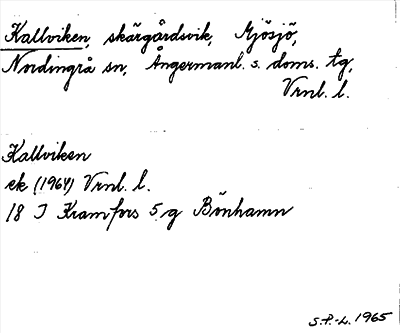 Kallviken, skärgårdsvik, Mjösjö,
Nordingrå sn, Ångermanl. s. doms. tg,
Vrnl. l.
Kallviken
ek (1964) Vrnl. l.
18 I Kramfors 5 g Bönhamn
S.P.-L. 1965